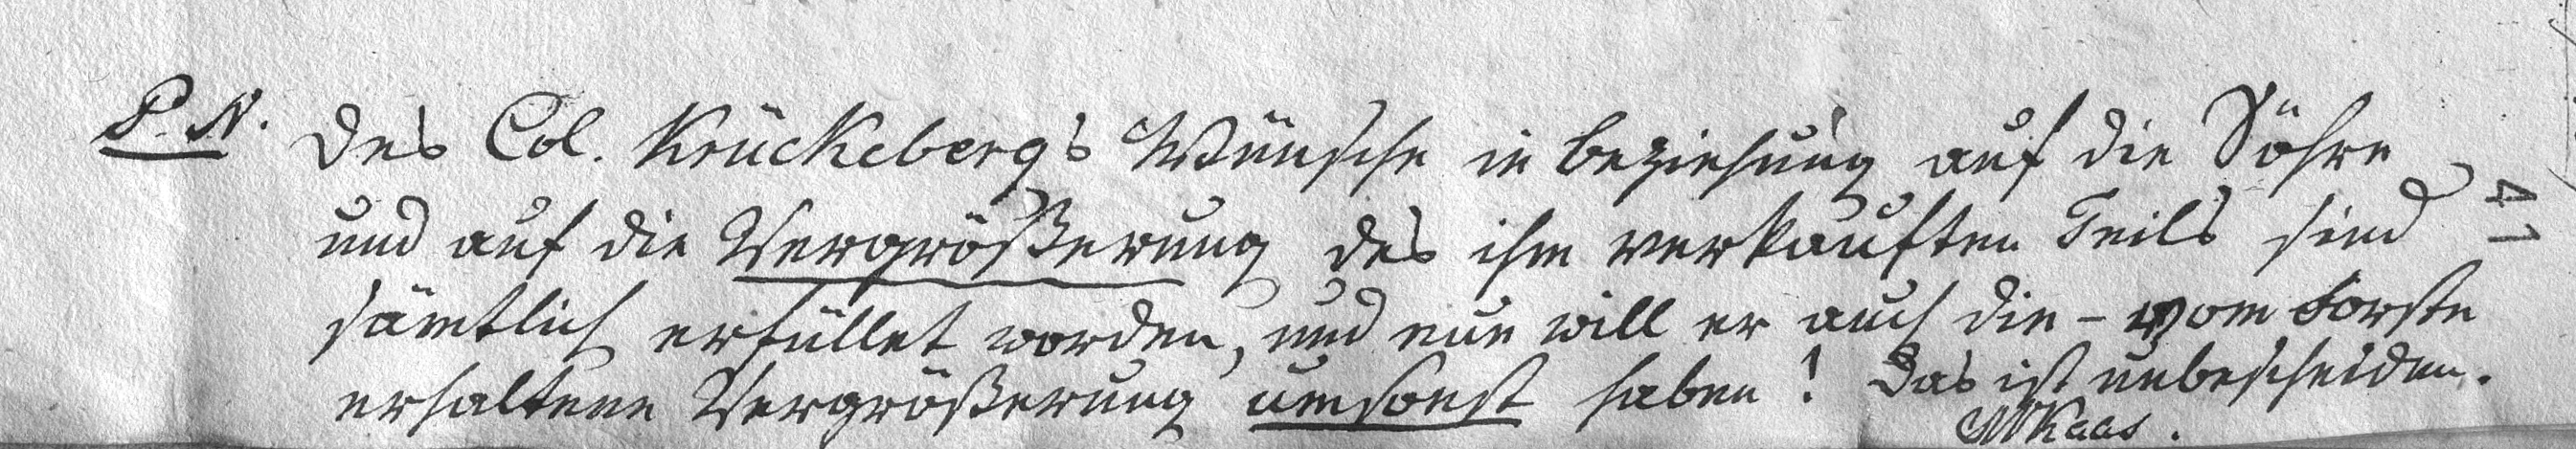 P. N. Des Col. Krückeberg's Wünsche in Beziehung auf die Söhre
und auf die Vergrößerung des ihm verkauften Teils sind
sämtlich erfüllet worden, und nun will er auch die - vom Forste
erhaltene Vergrößerung umsonst haben! Das ist unbescheiden.
Kaas.